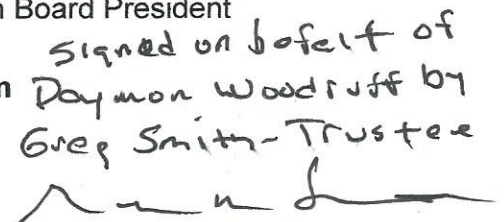 Board President
signed on bofelt of
Daymon Woodruff by
Greg Smith - Trustee